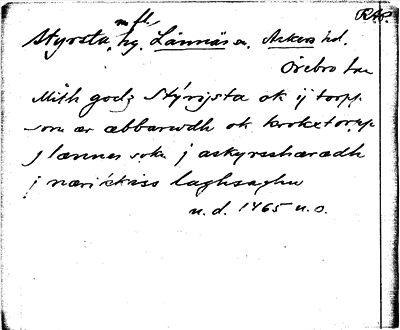 RAP.
m fl.
Styrsta, hg. Lännäs sn. Askers hd.
Örebro län
Mith godz Stýrijsta ok ij torpp
som ær abbarwdh ok kroketorpp
j lænnes sokn j askyrshæradh
j næri kiss laghsaghu
n. d. 1465 u.o.